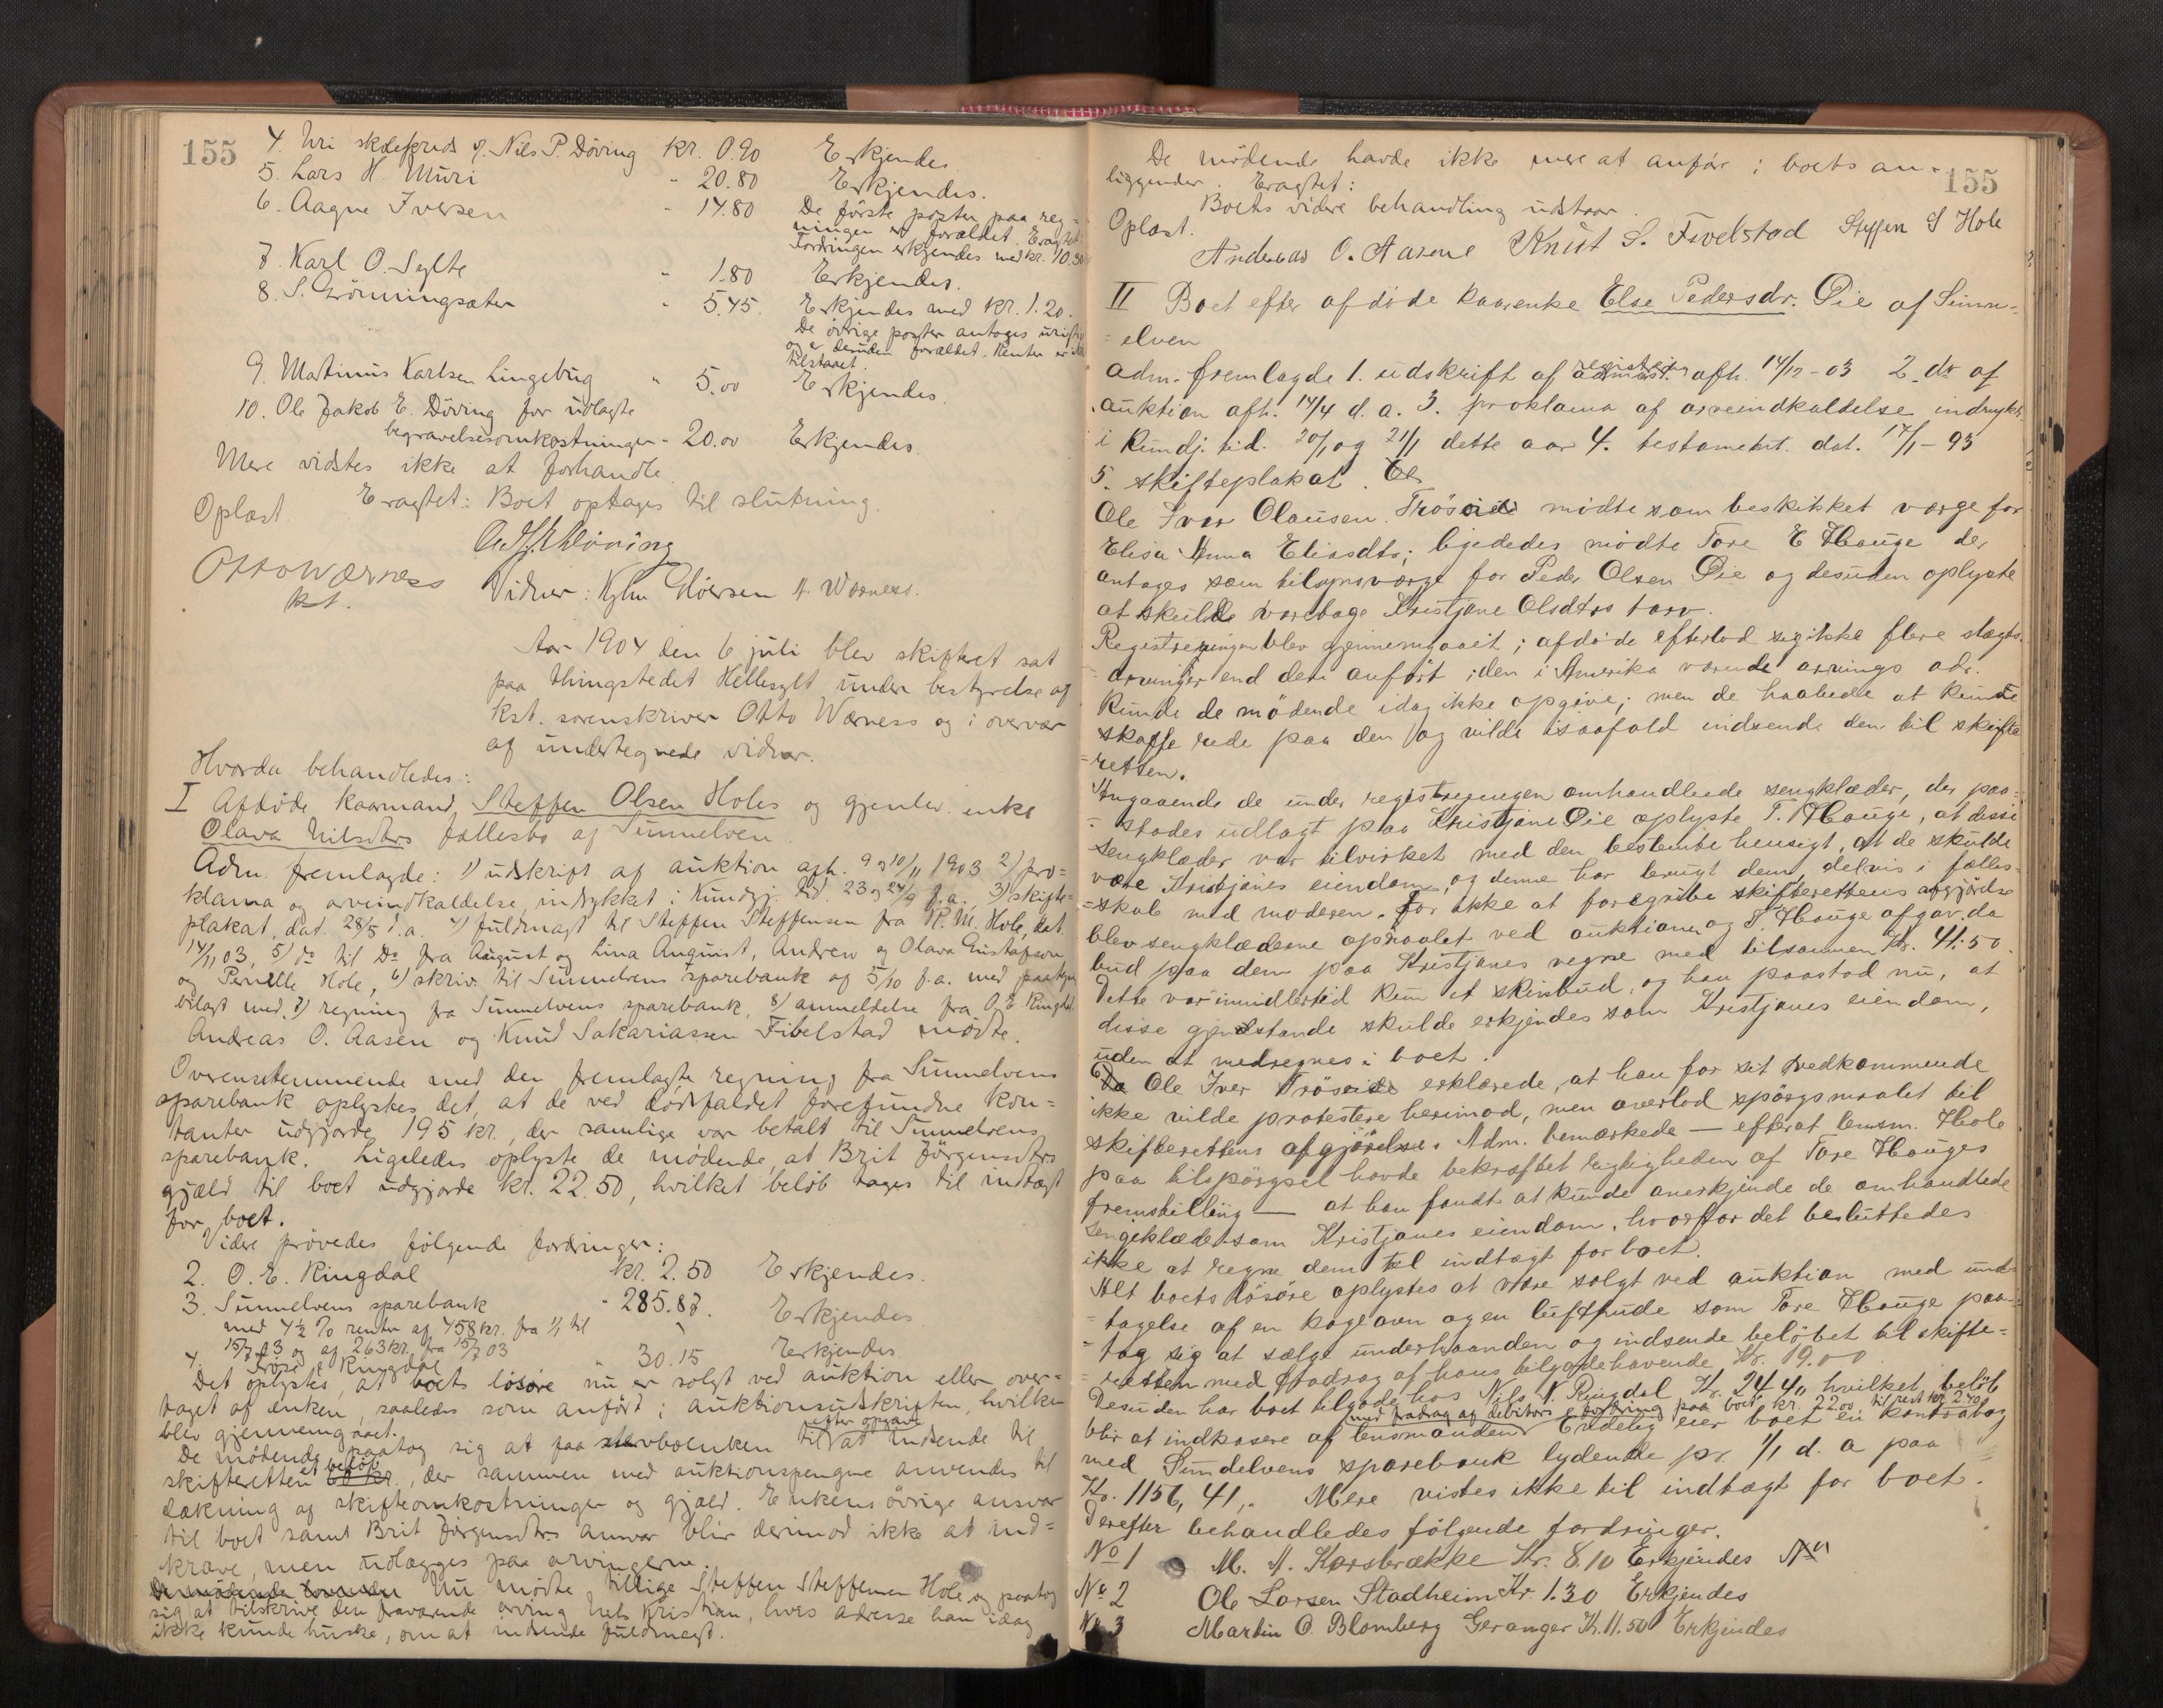 155
4. Uri skolekreds v. Nils P. Döving kr. 0.90 Erkjendes
5. Lars H. Muri - 20.80 Erkjendes.
6. Aagne Iversen - 14.80 De förste poster paa reg=
ningen er forældet. Eragtet:
Fordringen erkjendes med kr. 10.30
7. Karl O. Sylte - 1.80 Erkjendes.
8. S. Grönningsæter - 5.45. Erkjendes med kr. 1.20.
De övrige poster antages
og er desuden forældet. Renter er ikke
tilstaaet.
9. Martinus Karlsen Lingebug " 5.00 Erkjendes.
10. Ole Jakob E. Döving for udlagte
begravelsesomkostninger - 20.00 Erkjendes.
Mere vidstes ikke at forhandle.
Eragtet: Boet optages til slutning.
Oplæst.
O. J. Döving
Otto Wærness
kst.
Vidner: H. Wærness.
Aar 1904 den 6 juli blev skifteret sat
paa thingstedet Hellesylt under bestyrelse af
kst. sorenskriver Otto Wærness og i overvær
af undertegnede vidner.
Hvorda behandledes:
I Afdöde kaarmand, Steffen Olsen Holes og gjenlev. enke
Olava Nilsdtrs fællesbo af Sunnelven
Adm. fremlagde: 1) udskrift af auktion afh. 9 og 10/11 1903 2) pro=
klama og arveindkaldelse indrykket i Kundgj. tid. 23 og 24/9 f.a., 3) skifte=
plakat, dat. 28/5 d.a. 4) fuldmagt til Steffen Steffensen fra P. M. Hole, dat.
14/11 03, 5) do til Do fra August og Lina August, Andrew og Olava Gustafson
og Pernille Hole, 6) skriv. til Sunnelvens sparebank af 5/10 f.a. med paategn.
bilagt med. 7) regning fra Sunnelvens sparebank, 8) anmeldelse fra O. E. Ringdal
Andreas O. Aasen og Knud Sakariassen Fibelstad mödte.
Overensstemmende med den fremlagte regning fra Sunnelvens
sparebank oplystes det, at de ved dödsfaldet forefundne kon=
tanter udgjorde 195 kr., der samlige var betalt til Sunnelvens
sparebank. Ligeledes oplyste de mödende, at Brit Jörgensdtrs
gjæld til boet udgjorde kr. 22.50, hvilket belöb tages til indtægt
for boet.
Videre prövedes fölgende fordringer:
2. O. E. Ringdal kr. 2.50 Erkjendes.
3. Sunnelvens sparebank - 285.87. Erkjendes
med 4½ % renter af 458 kr. fra 1/1 til
15/7 03 og af 263 kr. fra 15/7 03
4. Ringdal " 30.15 Erkjendes
Det oplystes, at boets lösöre nu er solgt ved auktion eller over=
taget af enken, saaledes som anfört i auktionsutskriften, hvilken
blev gjennemgaaet.
De mödende paatog sig at faa stervboenken til efter opgave at indsende til
skifteretten et belöb 60 kr., der sammen med auktionspengene anvendes til
dækning af skifteomkostninger og gjæld. Enkens övrige ansvar
til boet samt Brit Jörgensdtrs ansvar blir derimod ikke at ind=
kræve, men udlægges paa arvingerne.
De mödende Nu mödte tillige Steffen Steffensen Hole og paatog
sig at tilskrive den fraværende arving Nils Kristian, hvis adresse han idag
ikke kunde huske, om at indsende fuldmagt.
155
De mödende havde ikke mere at anföre i boets an=
liggender. Eragtet:
Boets videre behandling udstaar.
Oplæst.
Andreas O. Aasene Knut S. Fivelstad Steffen S Hole
II Boet efter afdöde kaarenke Else Pedersdr. Öie af Sunn=
=elven
Adm. fremlagde 1. udskrift af registrering afh. 14/12-03 2. do af
auktion afh. 14/4 d. a. 3. proklama af arveindkaldelse indrykt.
i Kundj. tid. 20/1 og 21/1 dette aar 4. testament. dat. 17/1-93
5. skifteplakat.
Ole Iver Olausen Tröseide mödte som beskikket værge for
Elisa Anna Eliasdtr; ligeledes mödte Tore E Hauge der
antages som tilsynsværge for Peder Olsen Öie og desuden oplyste
at skulde varetage Kristjane Olsdtrs tarv.
Registreringen blev gjennemgaaet; afdöde efterlod sig ikke flere slægts=
=arvinger end den anfört; den i Amerika værende arvings adr.
kunde de mödende idag ikke opgive; men de haabede at kunde
skaffe rede paa den og vilde isaafald indsende den til skifte
=retten.
Angaaende de under registreringen omhandlede sengklæder, der paa=
=stodes udlagt paa Kristjane Öie oplyste T. Hauge, at disse
sengklæder var tilvirket med den bestemte hensigt, at de skulde
være Kristjanes eiendom, og denne har brugt dem, delvis i fælles=
=skab med moderen. For ikke at foregribe skifterettens afgjörelse
blev sengklæderne opraabt ved auktionen og T. Hauge afgav da
bud paa dem paa Kristjanes vegne med tilsammen Kr. 41.50
Dette var imidlertid kun et skinbud, og han paastod nu, at
disse gjendstande skulde erkjendes som Kristjanes eiendom,
uden at medregnes i boet.
Da Ole Iver Tröseide erklærede, at han for sit vedkommende
ikke vilde protestere herimod, men overlod spörgsmaalet til
skifterettens afgjörelse. Adm. bemærkede — efterat lensm. Hole
paa tilspörgsel havde bekræftet rigtigheden af Tore Hauges
fremstilling — at han fandt at kunde anerkjende de omhandlede
sengeklæder som Kristjanes eiendom, hvorfor det besluttedes
ikke at regne dem til indtægt for boet.
Alt boets lösöre oplystes at være solgt ved auktion med und=
=tagelse af en kogeovn og en luftpude som Tore Hauge paa=
=tog sig at sælge underhaanden og indsende belöbet til skifte=
=retten med fradrag af hans tilgodehavende Kr. 19.00
Desuden har boet tilgode hos Nils N. Ringdal Kr. 24.40 hvilket belöb
med fradrag af debitors fordring paa boet kr. 22.00, til rest kr. 2.40,
blir at indkasere af lensmanden. Endelig eier boet en kontrabog
med Sundelvens sparebank lydende pr. 1/1 d. a paa
Kr. 1156,41,. Mere vistes ikke til indtægt for boet.
Derefter behandledes fölgende fordringer.
No 1 M. A. Korsbrække Kr. 8.10 Erkjendes
No 2 Ole Larsen Stadheim Kr. 1.30 Erkjendes
No 3 Martin O. Blomberg Geranger Kr. 11.50 Erkjendes